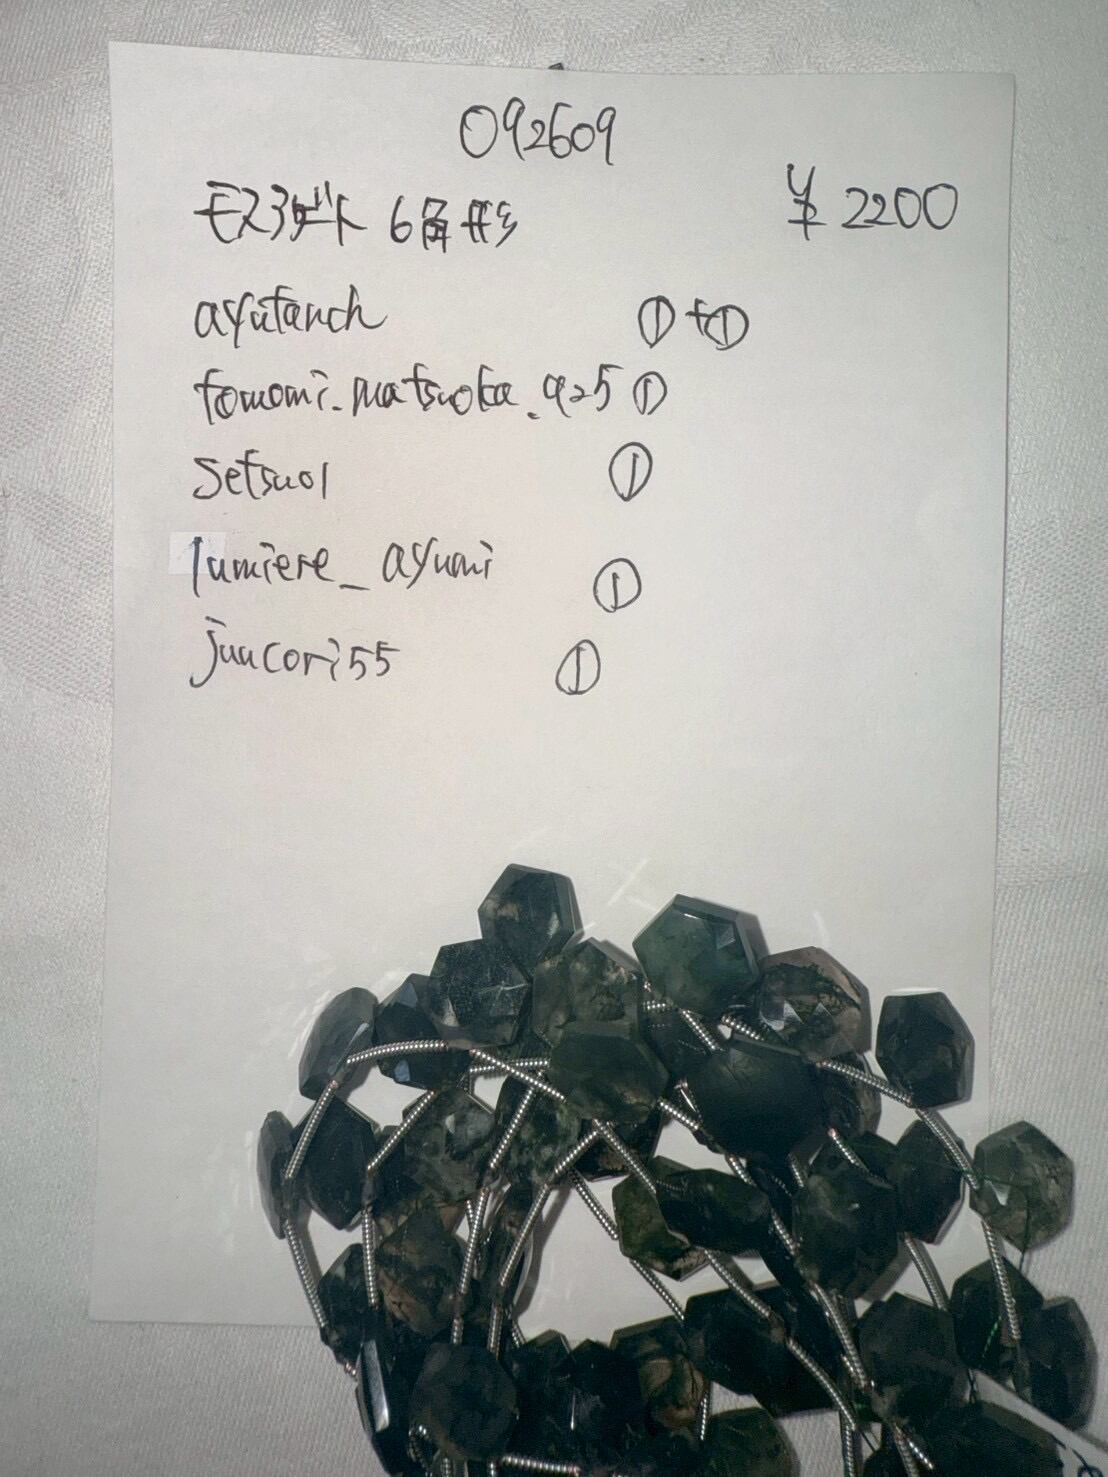 092609
モスアゲート 6角形 ¥2200
ayutanch ①+①
tomomi.matsuoka.925 ①
setsuo1 ①
lumiere_ayumi ①
juncori55 ①